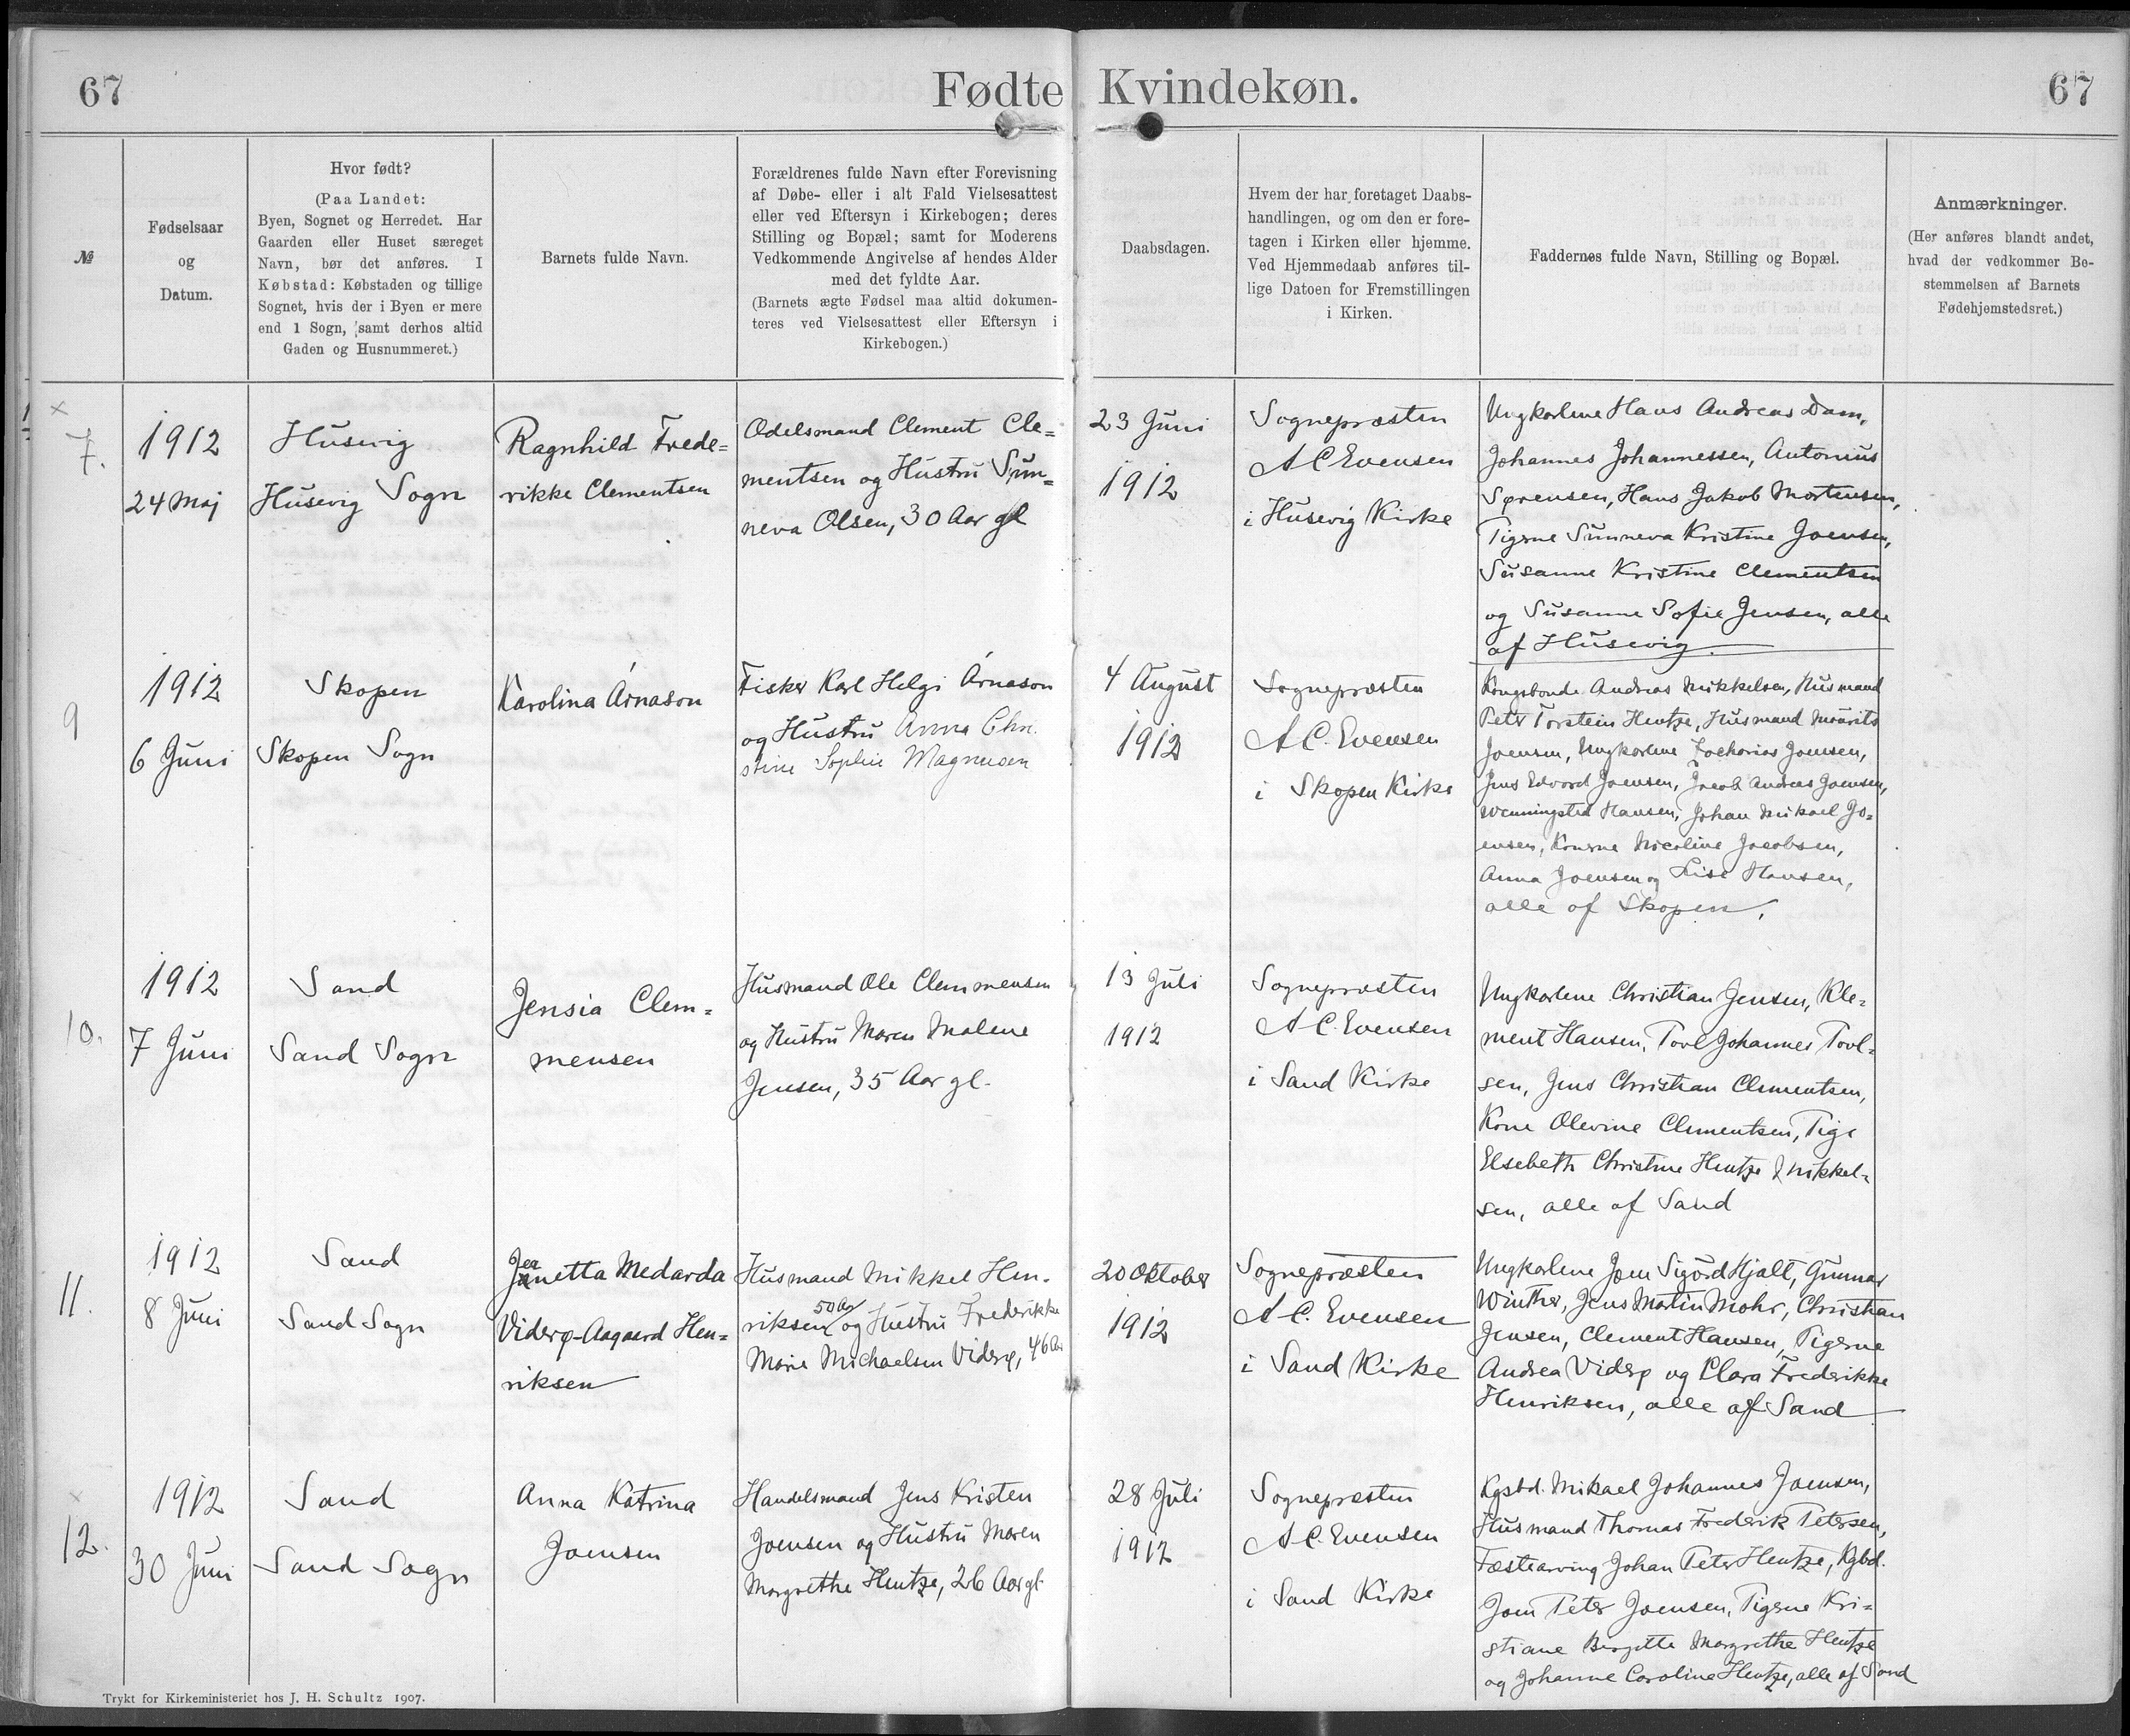 67
Fødte Kvindekøn.
67
№
Fødselsaar
og
Datum.
Hvor født?
(Paa Landet:
Byen, Sognet og Herredet. Har
Gaarden eller Huset særeget
Navn, bør det anføres. I
Købstad: Købstaden og tillige
Sognet, hvis der i Byen er mere
end 1 Sogn, samt derhos altid
Gaden og Husnummeret.)
Barnets fulde Navn.
Forældrenes fulde Navn efter Forevisning
af Døbe- eller i alt Fald Vielsesattest
eller ved Eftersyn i Kirkebogen; deres
Stilling og Bopæl; samt for Moderens
Vedkommende Angivelse af hendes Alder
med det fyldte Aar.
(Barnets ægte Fødsel maa altid dokumen-
teres ved Vielsesattest eller Eftersyn i
Kirkebogen.)
Daabsdagen.
Hvem der har foretaget Daabs-
handlingen, og om den er fore-
tagen i Kirken eller hjemme.
Ved Hjemmedaab anføres til-
lige Datoen for Fremstillingen
i Kirken.
Faddernes fulde Navn, Stilling og Bopæl.
Anmærkninger.
(Her anføres blandt andet,
hvad der vedkommer Be-
stemmelsen af Barnets
Fødehjemstedsret.)
×
7.
1912
24 Maj
Husevig
Husevig Sogn
Ragnhild Frede=
rikke Clementsen
Odelsmand Clement Cle=
mentsen og Hustru Sun=
neva Olsen, 30 Aar gl
23 Juni
1912
Sognepræsten
A C Evensen
i Husevig Kirke
Ungkarlene Hans Andreas Dam,
Johannes Johannessen, Antonius
Sørensen, Hans Jakob Mortensen,
Pigerne Sunneva Kristine Joensen,
Susanne Kristine Clementsen
og Susanne Sofie Jensen, alle
af Husevig.
9
1912
6 Juni
Skopen
Skopen Sogn
Karolina Árnason
Fisker Karl Helgi Árnason
og Hustru Anna Chri
stine Sophie Magnusen
4 August
1912
Sognepræsten
A C. Evensen
i Skopen Kirke
Kongsbonde Andreas Mikkelsen, Husmand
Peter Torstein Hentze, Husmand Mourits
Joensen, Ungkarlene Zacharias Joensen,
Jens Edvard Joensen, Jacob Andreas Joensen,
Wenningsted Hansen, Johan Mikael Jo=
ensen, Konerne Nicoline Jacobsen,
Anna Joensen og Lise Hansen,
alle af Skopen.
10.
1912
7 Juni
Sand
Sand Sogn
Jensia Clem=
mensen
Husmand Ole Clemmensen
og Hustru Maren Malene
Jensen, 35 Aar gl.
13 Juli
1912
Sognepræsten
A C. Evensen
i Sand Kirke
Ungkarlene Christian Jensen, Kle=
ment Hansen, Povl Johannes Povl=
sen, Jens Christian Clementsen,
Kone Olevine Clementsen, Pige
Elsebeth Christine Hentze Mikkel=
sen, alle af Sand
11.
1912
8 Juni
Sand
Sand Sogn
Jeanetta Medarda
Viderø-Aagaard Hen=
riksen
Husmand Mikkel Hen-
riksen 50 Ar og Hustru Frederikke
Marie Michaelsen Viderø, 46 Aar
20 Oktober
1912
Sognepræsten
A C. Evensen
i Sand Kirke
Ungkarlene Joen Sigurd Hjalt, Gunnar
Winther, Jens Martin Mohr, Christian
Jensen, Clement Hansen, Pigerne
Andrea Viderø og Clara Frederikke
Henriksen, alle af Sand
×
12.
1912
30 Juni
Sand
Sand Sogn
Anna Katrina
Joensen
Handelsmand Jens Kristen
Joensen og Hustru Maren
Margrethe Hentze, 26 Aar gl
28 Juli
1912
Sognepræsten
A C. Evensen
i Sand Kirke
Kgsbd. Mikael Johannes Joensen,
Husmand Thomas Frederik Petersen,
Fæstearving Johan Peter Hentze, Kgbd.
Joen Peter Joensen, Pigerne Kri=
stiane Birgitte Margrethe Hentze
og Johanne Caroline Hentze, alle af Sand
Trykt for Kirkeministeriet hos J. H. Schultz 1907.